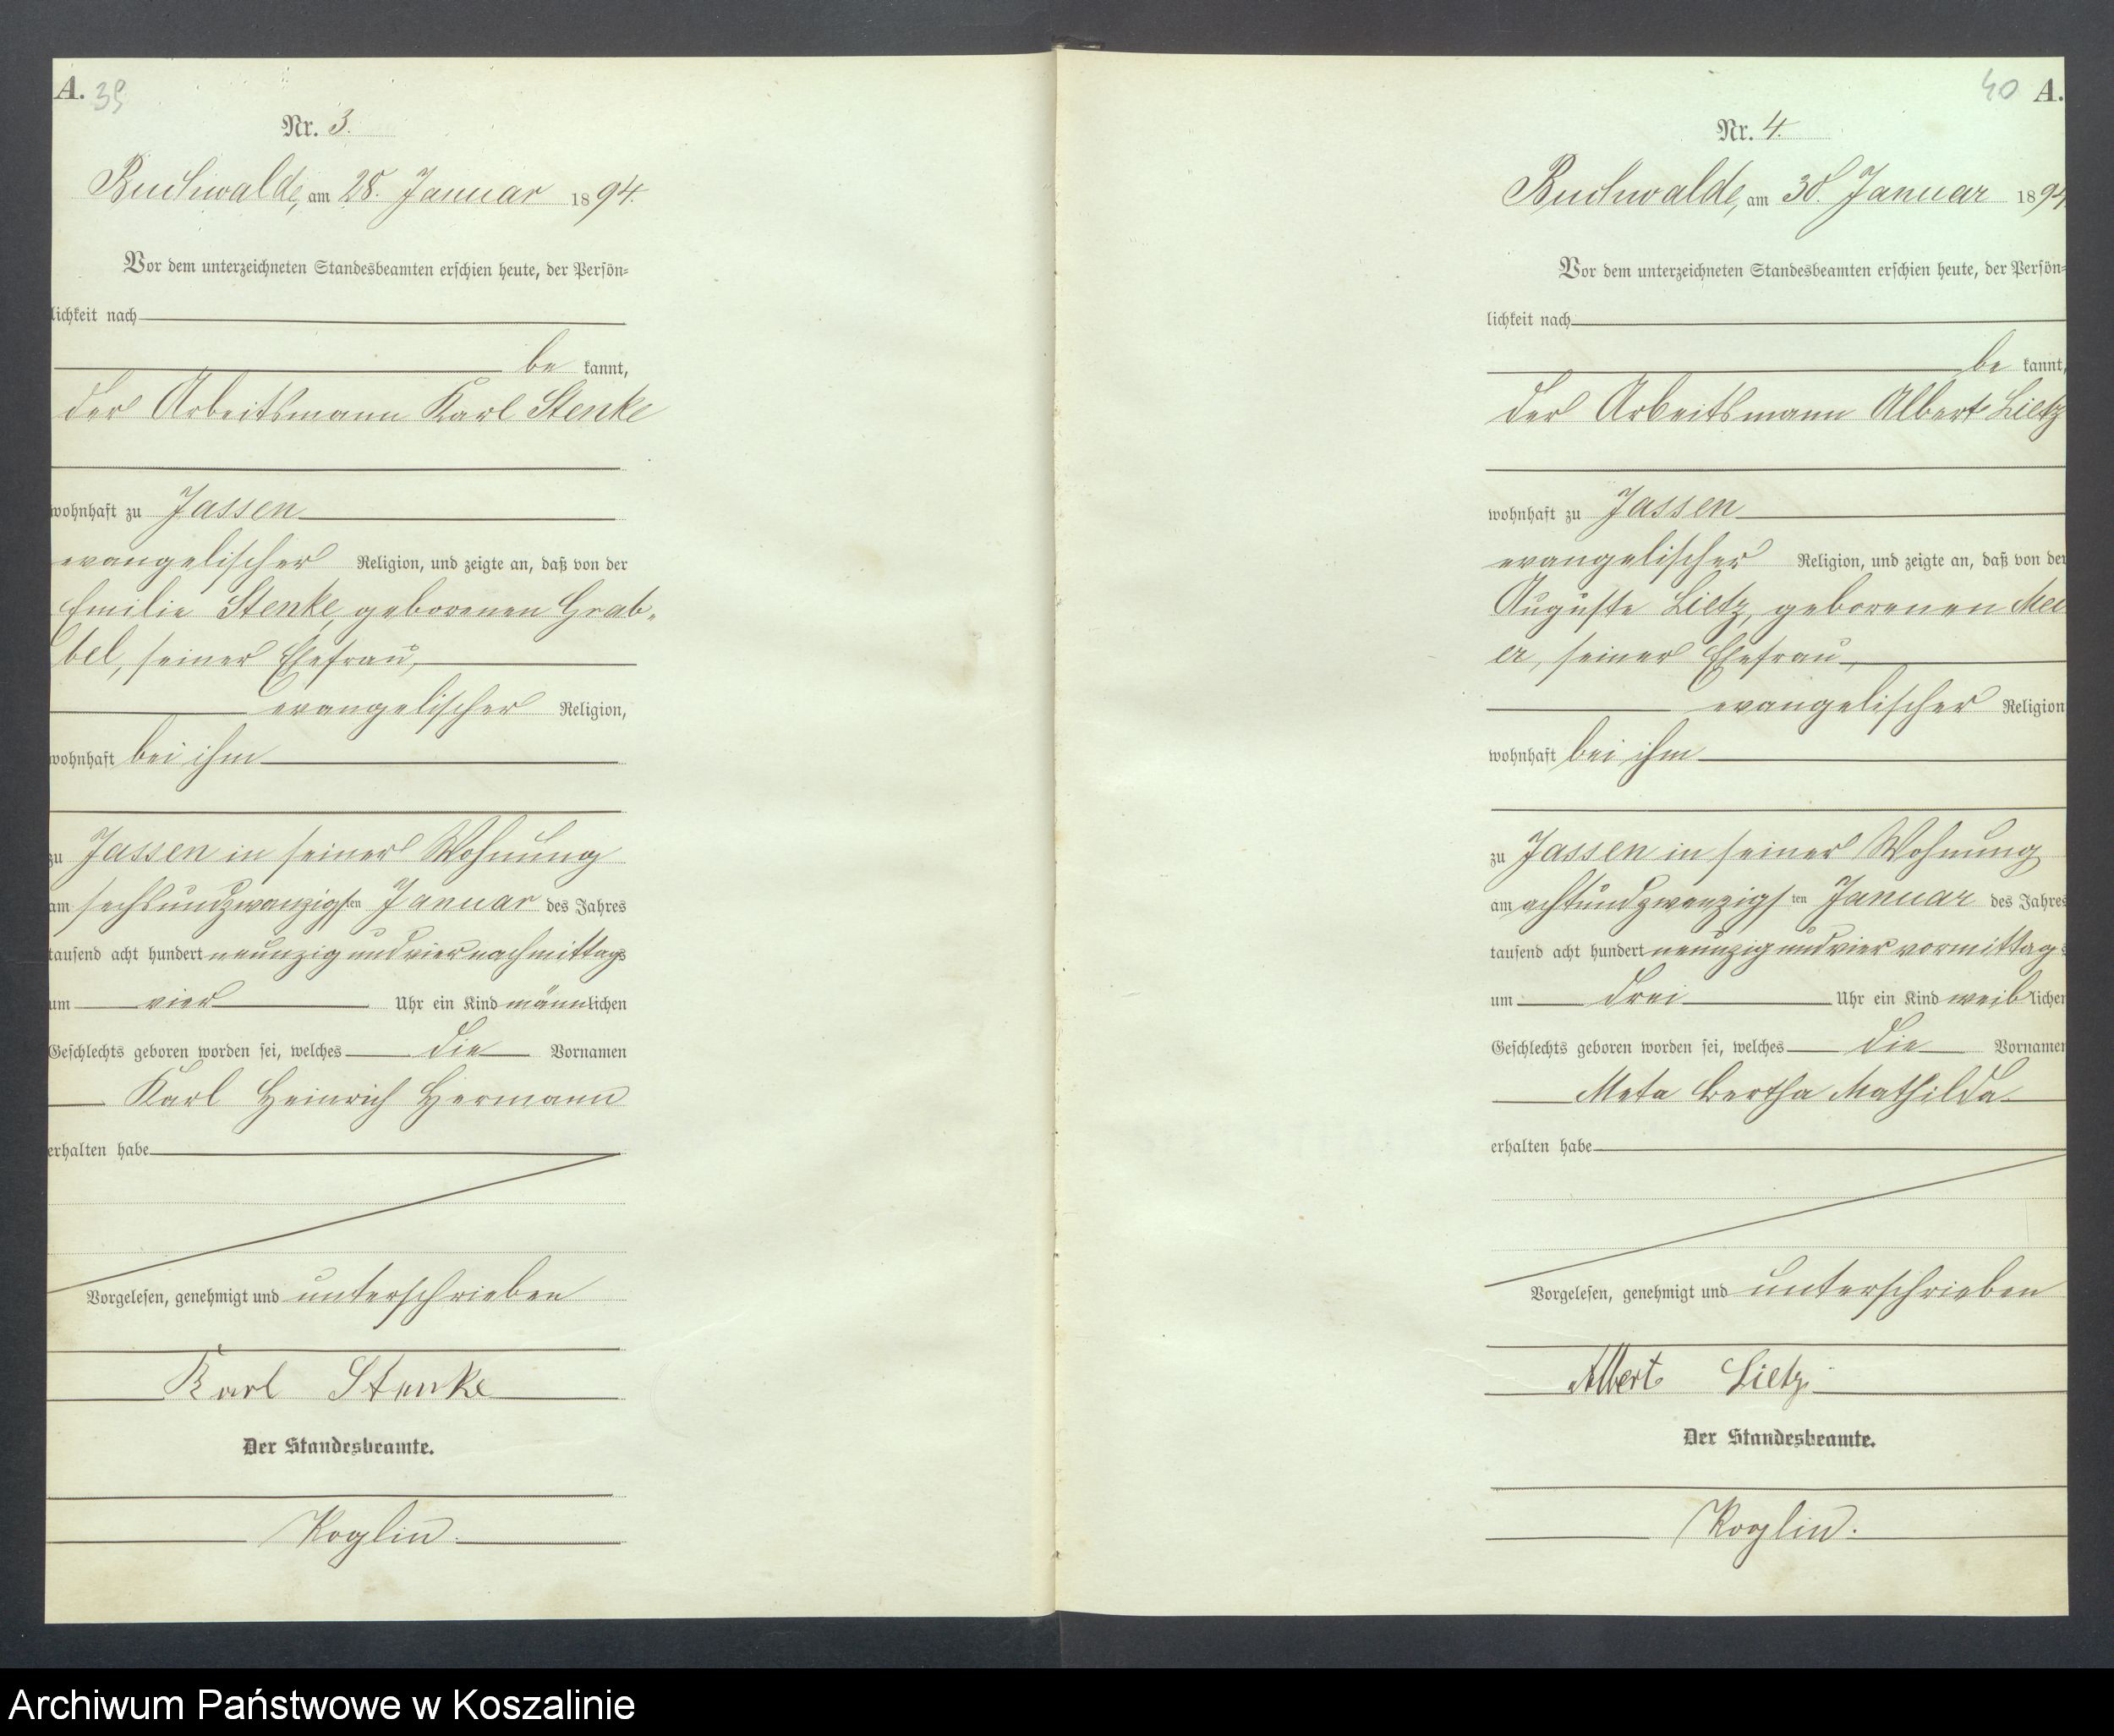 A. 39
Nr. 3.
Buchwalde, am 28. Januar 1894.
Vor dem unterzeichneten Standesbeamten erschien heute, der Persön=
lichkeit nach
be kannt,
der Arbeitsmann Karl Stenke
wohnhaft zu Jassen
evangelischer Religion, und zeigte an, daß von der
Emilie Stenke, geborenen Grab-
bel, seiner Ehefrau,
evangelischer Religion,
wohnhaft bei ihm
zu Jassen in seiner Wohnung
am sechsundzwanzigsten Januar des Jahres
tausend acht hundert neunzig und vier nachmittags
um vier Uhr ein Kind männlichen
Geschlechts geboren worden sei, welches die Vornamen
Karl Heinrich Hermann
erhalten habe
Vorgelesen, genehmigt und unterschrieben
Karl Stenke
Der Standesbeamte.
Koglin.
40 A.
Nr. 4.
Buchwalde, am 30. Januar 1894
Vor dem unterzeichneten Standesbeamten erschien heute, der Persön=
lichkeit nach
be kannt,
der Arbeitsmann Albert Lietz
wohnhaft zu Jassen
evangelischer Religion, und zeigte an, daß von der
Auguste Lietz, geborenen Mei
er, seiner Ehefrau,
evangelischer Religion
wohnhaft bei ihm
zu Jassen in seiner Wohnung
am achtundzwanzigsten Januar des Jahres
tausend acht hundert neunzig und vier vormittags
um drei Uhr ein Kind weiblichen
Geschlechts geboren worden sei, welches die Vornamen
Meta Bertha Mathilda
erhalten habe
Vorgelesen, genehmigt und unterschrieben
Albert Lietz
Der Standesbeamte.
Koglin.
Archiwum Państwowe w Koszalinie